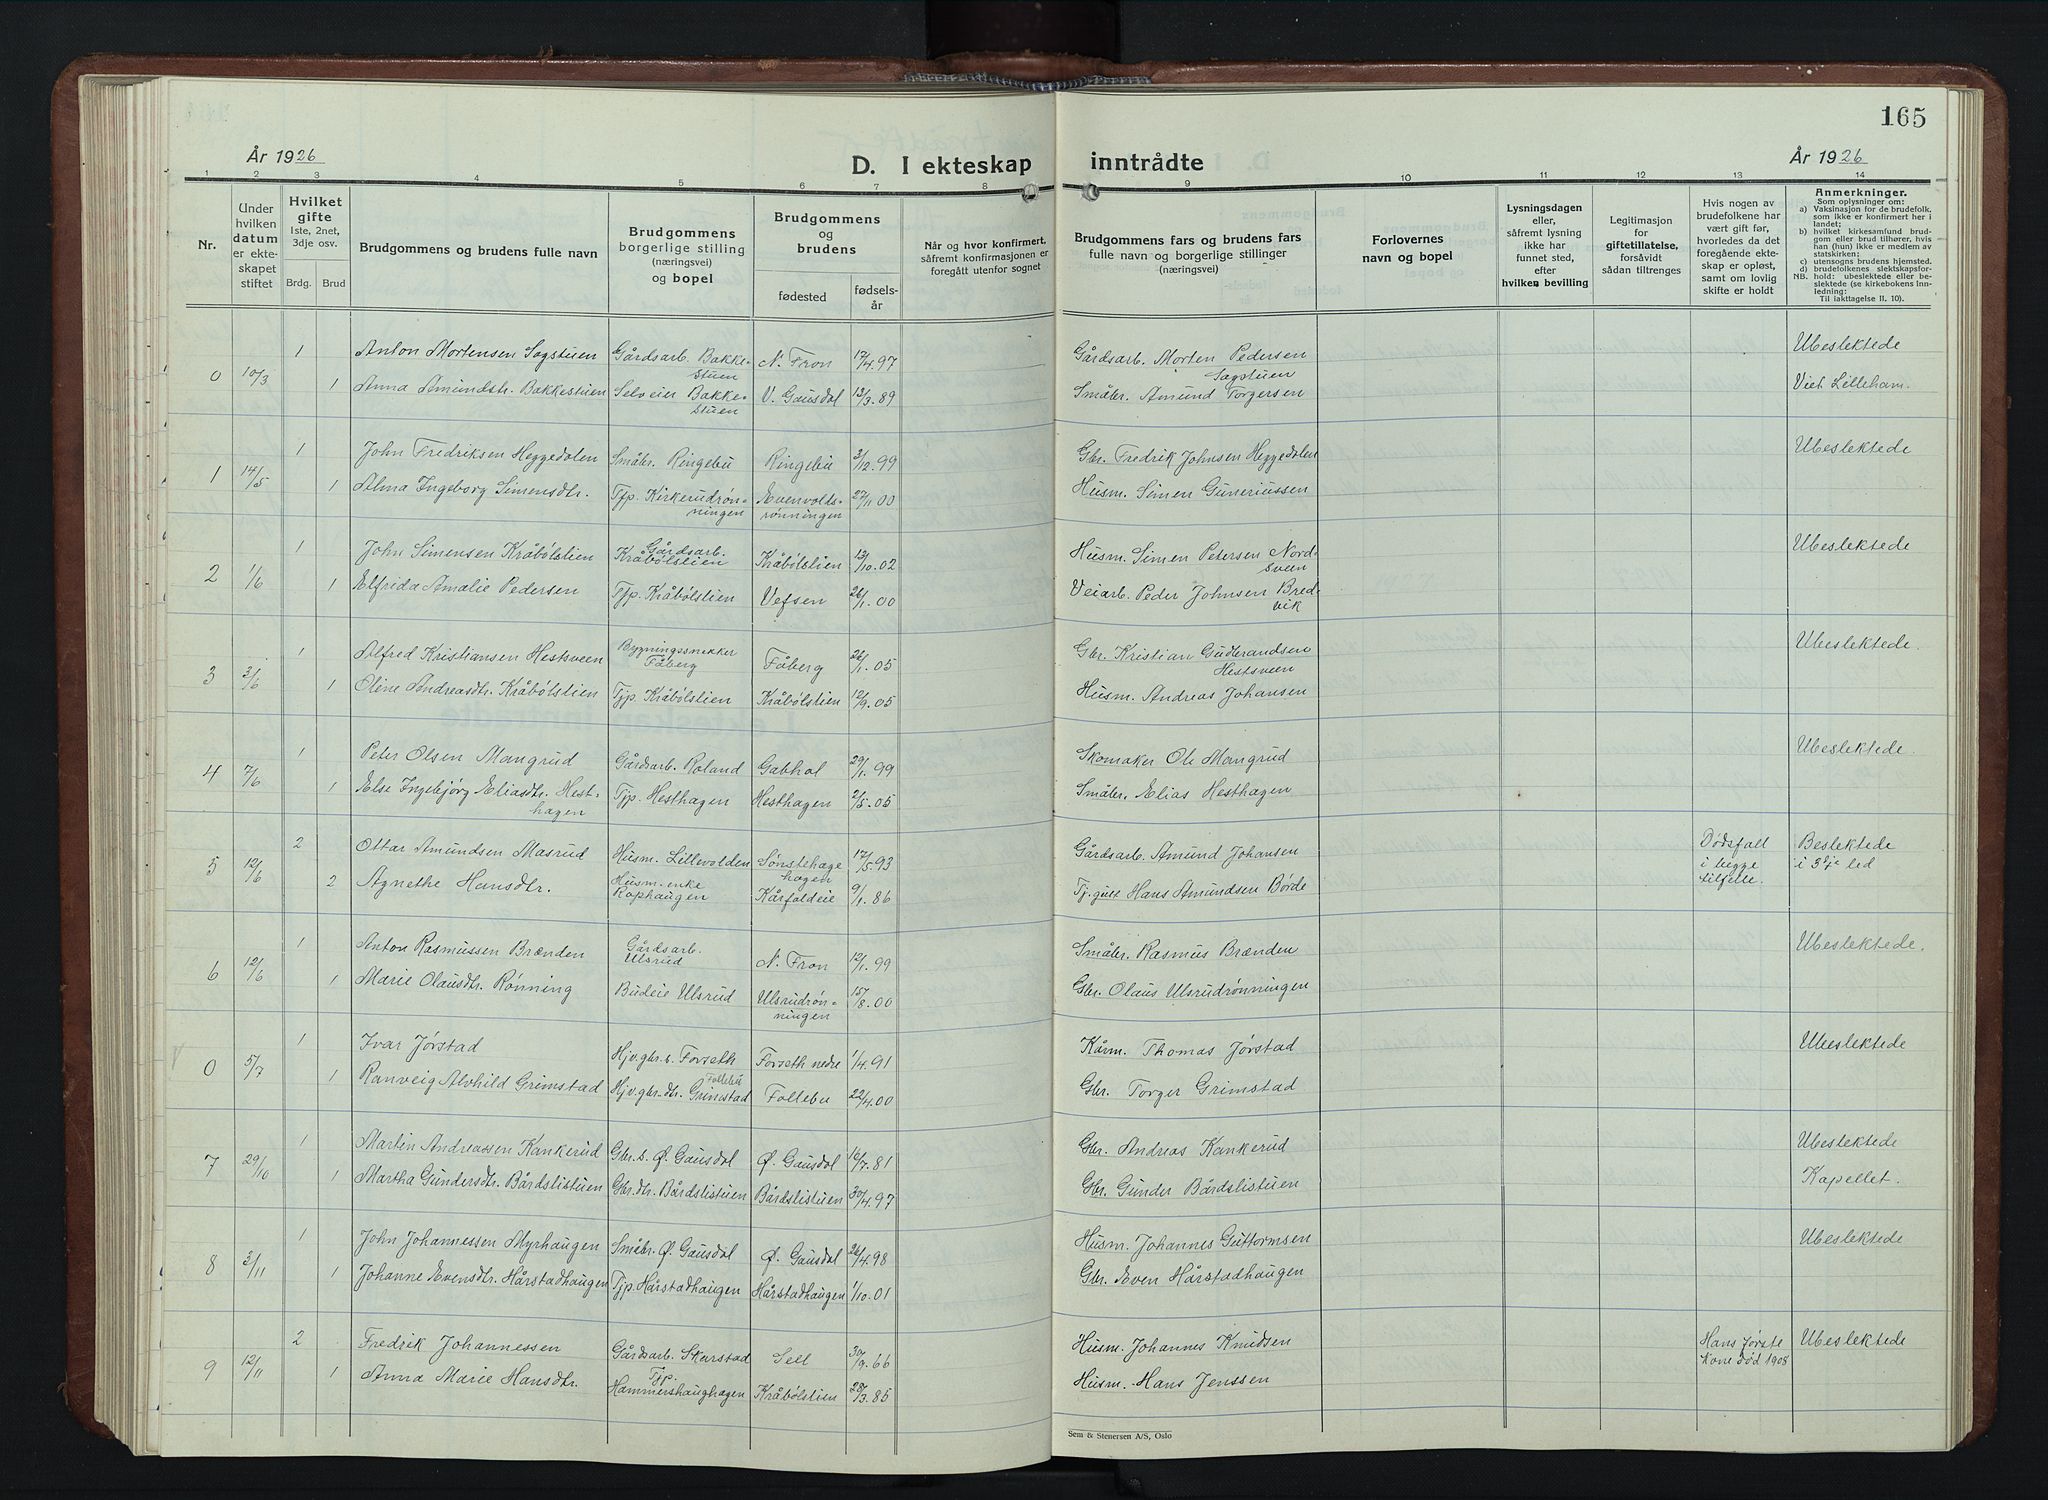 165
År 1926
D. I ekteskap inntrådte
År 1926
1 2 3 4 5 6 7 8 9 10 11 12 13 14
Nr.
Under hvilken datum er ekteskapet stiftet
Hvilket gifte 1ste, 2net, 3dje osv.
Brdg. Brud
Brudgommens og brudens fulle navn
Brudgommens borgerlige stilling (næringsvei) og bopel
Brudgommens og brudens
fødested
fødselsår
Når og hvor konfirmert, såfremt konfirmasjonen er foregått utenfor sognet
Brudgommens fars og brudens fars fulle navn og borgerlige stillinger (næringsvei)
Forlovernes navn og bopel
Lysningsdagen eller, såfremt lysning ikke har funnet sted, efter hvilken bevilling
Legitimasjon for giftetillatelse, forsåvidt sådan tiltrenges
Hvis nogen av brudefolkene har vært gift før, hvorledes da det foregående ekteskap er opløst, samt om lovlig skifte er holdt
Anmerkninger.
Som oplysninger om:
a) Vaksinasjon for de brudefolk, som ikke er konfirmert her i landet;
b) hvilket kirkesamfund brudgom eller brud tilhører, hvis han (hun) ikke er medlem av statskirken;
c) utensogns brudens hjemsted.
NB. d) brudefolkenes slektskapsforhold: ubeslektede eller beslektede (se kirkebokens Innledning: Til iakttagelse II. 10).
0 10/3 1 Anton Mortensen Sagstuen Gårdsarb. Bakkestuen N. Fron 17/4.97 Gårdsarb. Morten Pedersen Sagstuen Ubeslektede
1 Anna Amundsdtr. Bakkestuen Selveier Bakkestuen V. Gausdal 13/3.89 Småbr. Amund Torgersen Viet Lilleham.
1 14/5 1 John Fredriksen Heggedalen Småbr. Ringebu Ringebu 3/12.99 Gbr. Fredrik Johnsen Heggedalen Ubeslektede
1 Alma Ingeborg Simensdtr. Tjp. Kirkerudrønningen Evenvoldsrønningen 27/11 00 Husm. Simen Guneriussen
2 1/6 1 John Simensen Kråbølstien Gårdsarb. Kråbølstien Kråbølstien 13/10.02 Husm. Simen Petersen Nordsveen Ubeslektede
1 Elfrida Amalie Pedersen Tjp. Kråbølstien Vefsen 26/1.00 Veiarb. Peder Johnsen Bredvik
3 3/6 1 Alfred Kristiansen Hestsveen Bygningssnekker Fåberg Fåberg 26/1.05 Gbr. Kristian Gudbrandsen Hestsveen Ubeslektede.
1 Oline Andreasdtr. Kråbølstien Tjp. Kråbølstien Kråbølstien 12/9.05 Husm. Andreas Johansen
4 7/6 1 Peter Olsen Mangrud Gårdsarb. Roland Gabhol 29/1.99 Skomaker Ole Mangrud Ubeslektede.
1 Else Ingebjørg Eliasdtr. Hesthagen Tjp. Hesthagen Hesthagen 2/5.05 Småbr. Elias Hesthagen
5 12/6 2 Ottar Amundsen Masrud Husm. Lillevolden Sønstehagehagen 17/5.93 Gårdsarb. Amund Johansen Dødsfall i begge tilfelle. Beslektede i 3dje led
2 Agnethe Hansdtr. Husm.enke Kophaugen Kårfaldeie 9/1.86 Tj.gutt Hans Amundsen Børde
6 12/6 1 Anton Rasmussen Brænden Gårdsarb. Ulsrud N. Fron 12/1.99 Småbr. Rasmus Brænden Ubeslektede.
1 Marie Olausdtr. Rønning Budeie Ulsrud Ulsrudrønningen 15/8.00 Gbr. Olaus Ulsrudrønningen
0 5/7 1 Ivar Jørstad Hjv. gbr. s. Forseth Forseth nedre 1/4.91 Kårm. Thomas Jørstad Ubeslektede
1 Ranveig Alvhild Grimstad Hjv. gbr. dtr. Grimstad Follebu Follebu 22/4.00 Gbr. Torger Grimstad
7 29/10 1 Martin Andreassen Kankerud Gbr. s. Ø. Gausdal Ø. Gausdal 16/7.81 Gbr. Andreas Kankerud Ubeslektede
1 Martha Gundersdtr. Bårdslistuen Gbr. dtr. Bårdslistuen Bårdslistuen 30/4.97 Gbr. Gunder Bårdslistuen Kapellet.
8 3/11 1 John Johannessen Myrhaugen Småbr. Ø. Gausdal Ø. Gausdal 26/4.98 Husm. Johannes Guttormsen Ubeslektede
1 Johanne Evensdtr. Hårstadhaugen Tjp. Hårstadhaugen Hårstadhaugen 1/10.01 Gbr. Even Hårstadhaugen
9 12/11 2 Fredrik Johannessen Gårdsarb. Skarstad Sell 30/9.66 Husm. Johannes Knudsen Hans første kone død 1908 Ubeslektede
1 Anna Marie Hansdtr. Tjp. Hammershaughagen Kråbølstien 28/3.85 Husm. Hans Jenssen
Sem & Stenersen A/S, Oslo